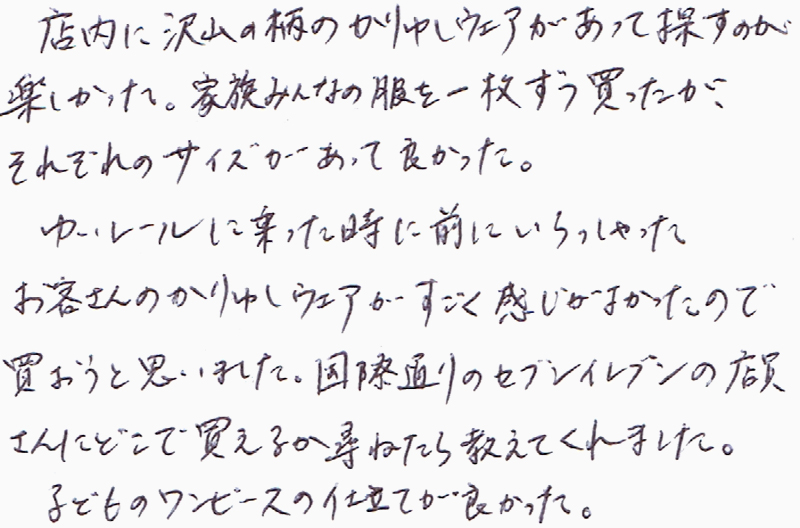 店内に沢山の柄のかりゆしウェアがあって探すのが
楽しかった。家族みんなの服を一枚ずつ買ったが、
それぞれのサイズがあって良かった。
ゆいレールに乗った時に前にいらっしゃった
お客さんのかりゆしウェアがすごく感じがよかったので
買おうと思いました。国際通りのセブンイレブンの店員
さんにどこで買えるか尋ねたら教えてくれました。
子どものワンピースの仕立てが良かった。